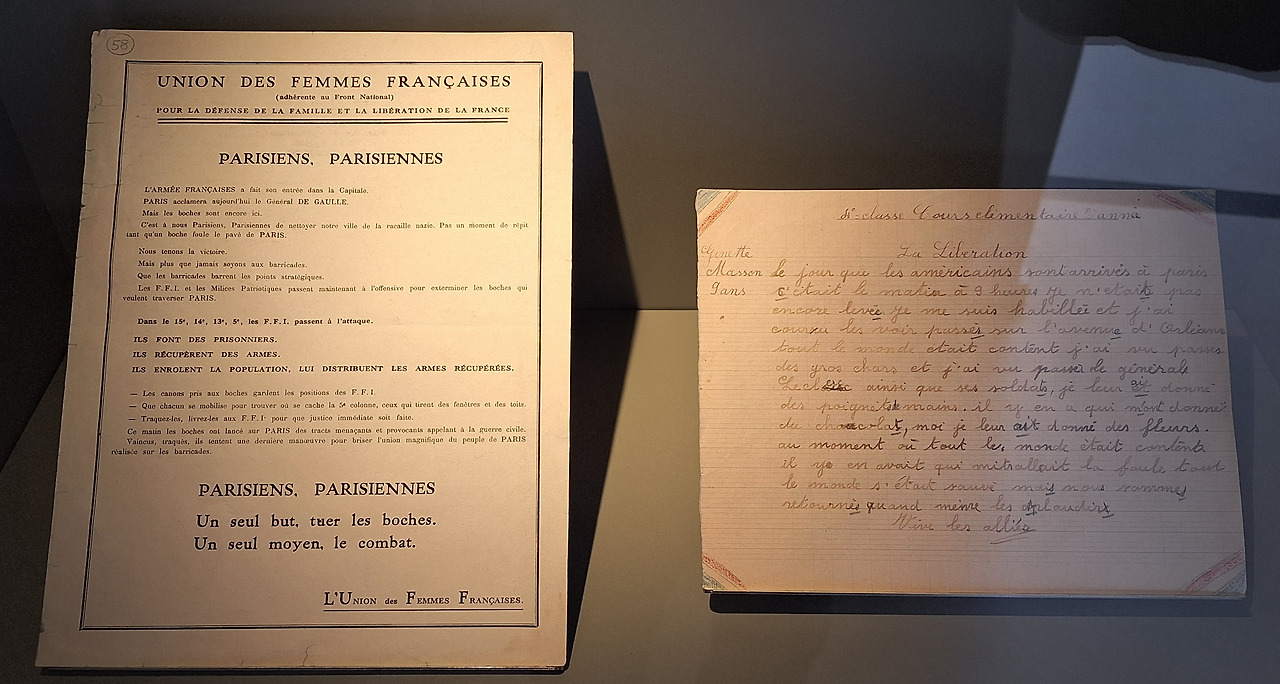 58
UNION DES FEMMES FRANÇAISES
(adhérente au Front National)
POUR LA DÉFENSE DE LA FAMILLE ET LA LIBÉRATION DE LA FRANCE
PARISIENS, PARISIENNES
L'ARMÉE FRANÇAISES a fait son entrée dans la Capitale.
PARIS acclamera aujourd'hui le Général DE GAULLE.
Mais les boches sont encore ici.
C'est à nous Parisiens, Parisiennes de nettoyer notre ville de la racaille nazie. Pas un moment de répit
tant qu'un boche foule le pavé de PARIS.
Nous tenons la victoire.
Mais plus que jamais soyons aux barricades.
Que les barricades barrent les points stratégiques.
Les F.F.I. et les Milices Patriotiques passent maintenant à l'offensive pour exterminer les boches qui
veulent traverser PARIS.
Dans le 15e, 14e, 13e, 5e, les F.F.I. passent à l'attaque.
ILS FONT DES PRISONNIERS.
ILS RÉCUPÈRENT DES ARMES.
ILS ENROLENT LA POPULATION, LUI DISTRIBUENT LES ARMES RÉCUPÉRÉES.
— Les canons pris aux boches gardent les positions des F.F.I.
— Que chacun se mobilise pour trouver où se cache la 5e colonne, ceux qui tirent des fenêtres et des toits.
— Traquez-les, livrez-les aux F.F.I. pour que justice immédiate soit faite.
Ce matin les boches ont lancé sur PARIS des tracts menaçants et provocants appelant à la guerre civile.
Vaincus, traqués, ils tentent une dernière manœuvre pour briser l'union magnifique du peuple de PARIS
réalisée sur les barricades.
PARISIENS, PARISIENNES
Un seul but, tuer les boches.
Un seul moyen, le combat.
L'UNION des FEMMES FRANÇAISES.
4e classe Cours élémentaire 2 anné
Ginette
Masson
9ans
La Libération
le jour que les américains sont arrivés à paris
c'était le matin à 9 heures je n'etais pas
encore levée je me suis habillée et j'ai
couru les voir passés sur l'avenue d'Orléans
tout le monde était content j'ai vu passer
des gros chars et j'ai vu passé le générale
Lecl ainsi que ses soldats, je leur ai donné
des poignets mains. il y en a qui m'ont donné
du chocolat, moi je leur ait donné des fleurs.
au moment où tout le monde était contents
il y en avait qui mitrallait la foule tout
le monde s'était sauvé mais nous sommes
retournés quand même les aplaudir
Vive les alliés